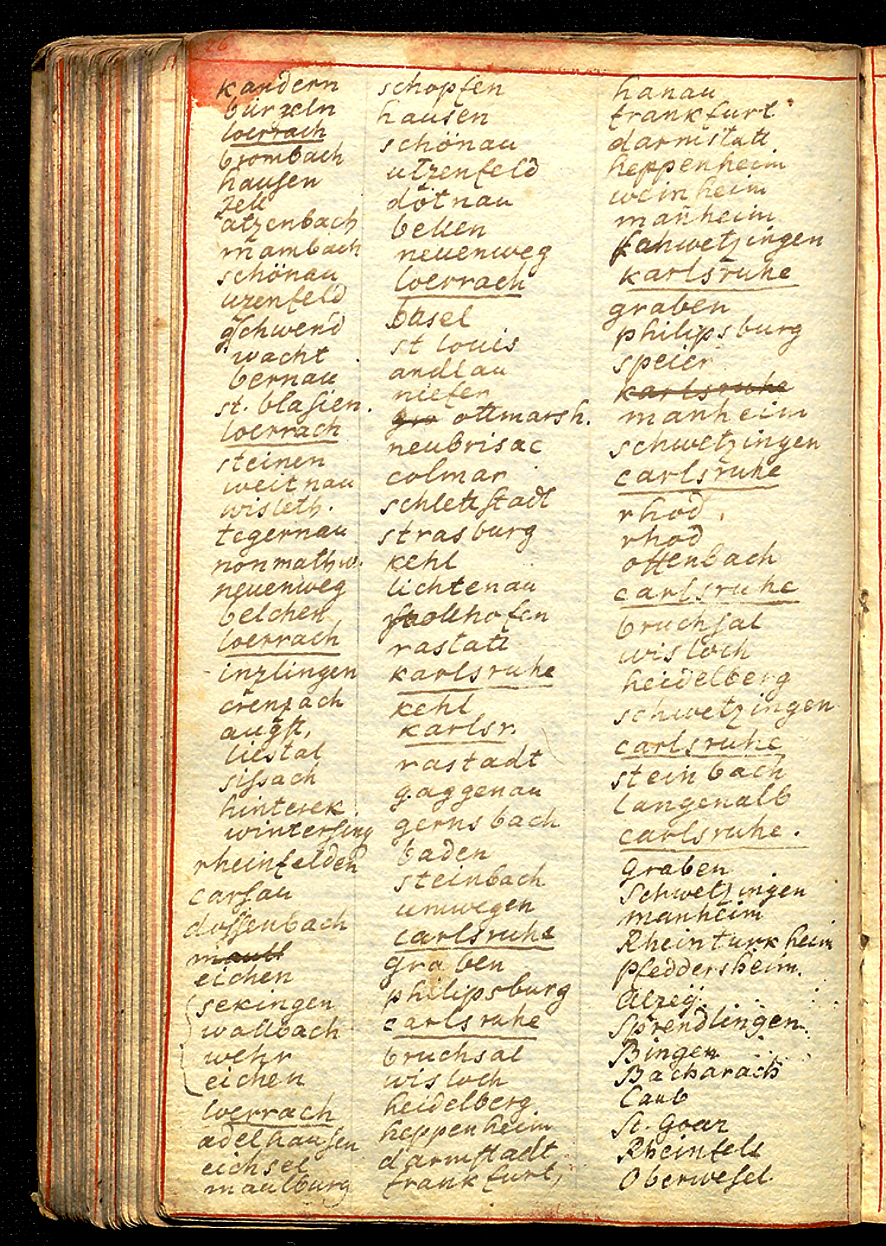 26
kandern
bürgeln
loerrach
brombach
hausen
zell
atzenbach
mambach
schönau
uzenfeld
gschwend
wacht
bernau
st. blasien.
loerrach
steinen
weitnau
wisleth.
tegernau
nonmattw.
neuenweg
belchen
loerrach
inzlingen
crenzach
augst,
liestal
sissach
hinterek.
wintersing
rheinfelden
carsau
dossenbach
maulb
eichen
sekingen
wallbach
wehr
eichen
loerrach
adelhausen
eichsel
maulburg
schopfen
hausen
schönau
utzenfeld
dotnau
bellen
neuenweg
loerrach
basel
st louis
andlau
niefer
gro ottmarsh.
neubrisac
colmar
schlettstadt
strasburg
kehl
lichtenau
stollhofen
rastatt
karlsruhe
kehl
karlsr.
rastadt
gaggenau
gernsbach
baden
steinbach
umwegen
carlsruhe
graben
philipsburg
carlsruhe
bruchsal
wisloch
heidelberg
heppenheim
darmstadt
frankfurt,
hanau
frankfurt
darmstatt
heppenheim
weinheim
manheim
schwetzingen
karlsruhe
graben
philipsburg
speier
karlsruhe
manheim
schwetzingen
carlsruhe
rhod.
rhod
offenbach
carlsruhe
bruchsal
wisloch
heidelberg
schwetzingen
carlsruhe
steinbach
langenalb
carlsruhe.
graben
Schwetzingen
manheim
Rheinturkheim
Pfeddersheim.
Alzey.
Sprendlingen.
Bingen
Bacharach
Caub
St. Goar
Rheinfels
Oberwesel